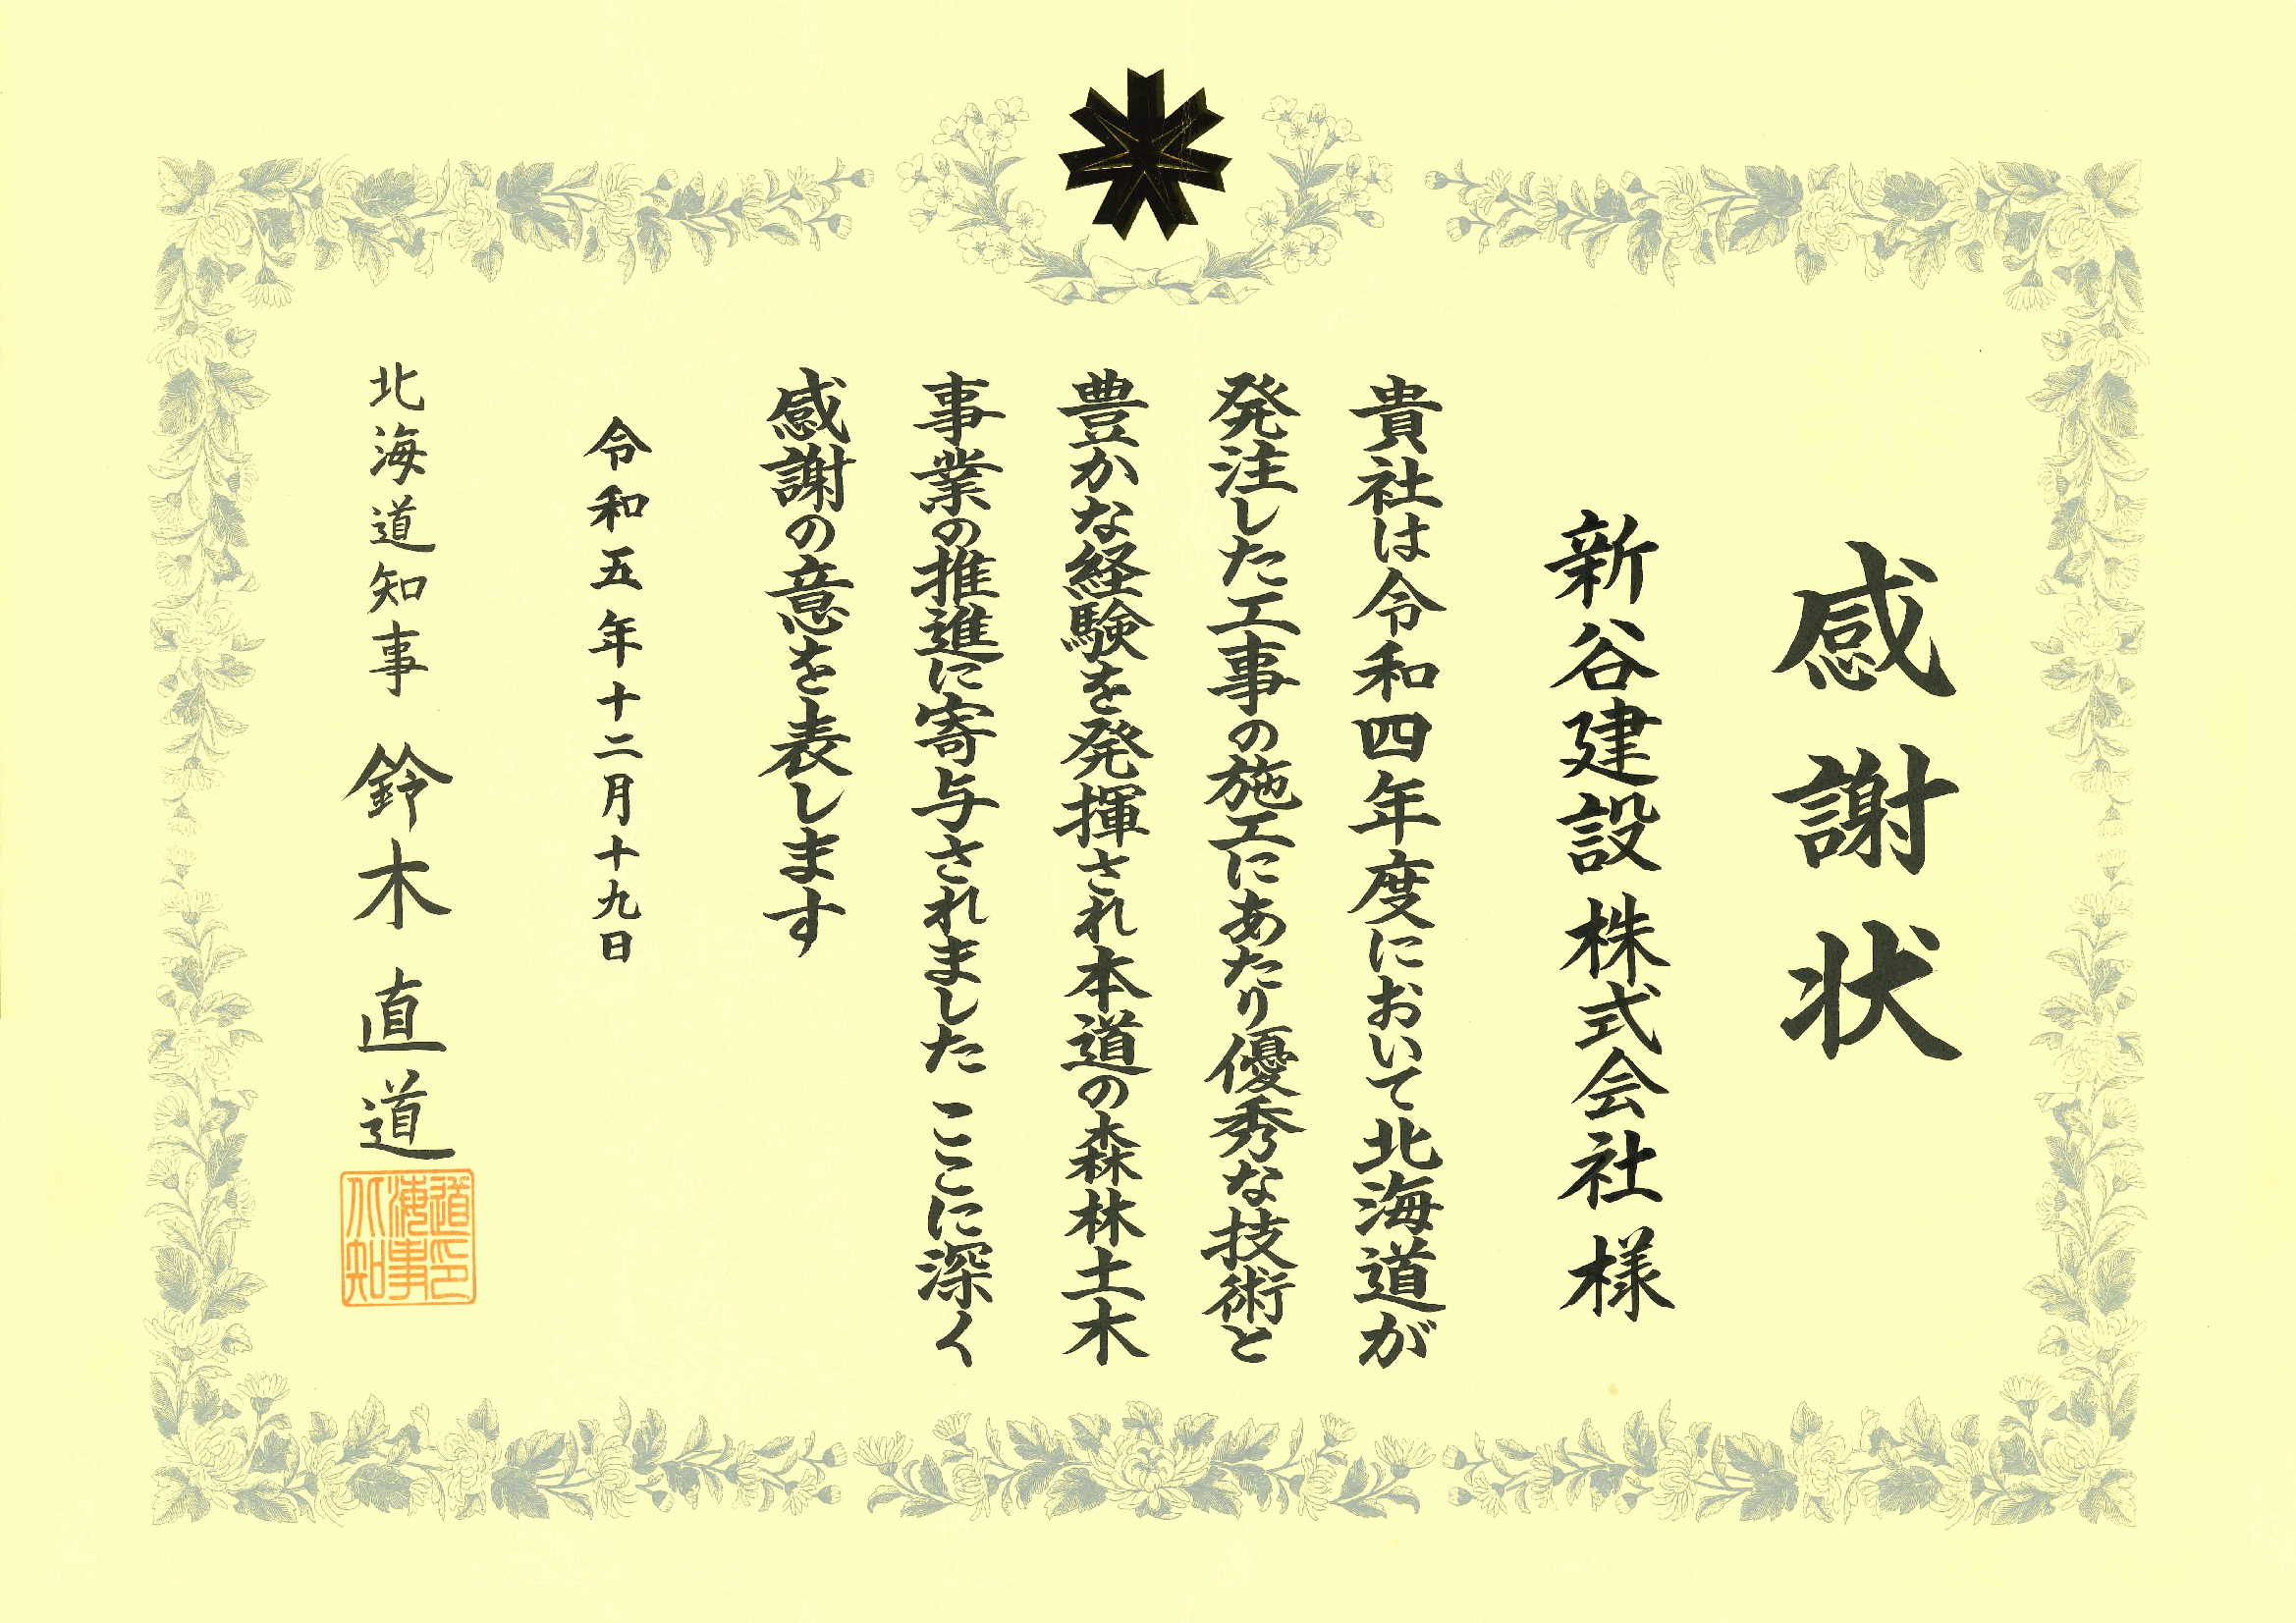 感謝状
新谷建設株式会社様
貴社は令和四年度において北海道が
発注した工事の施工にあたり優秀な技術と
豊かな経験を発揮され本道の森林土木
事業の推進に寄与されました ここに深く
感謝の意を表します
令和五年十二月十九日
北海道知事 鈴木直道
北海道知事印